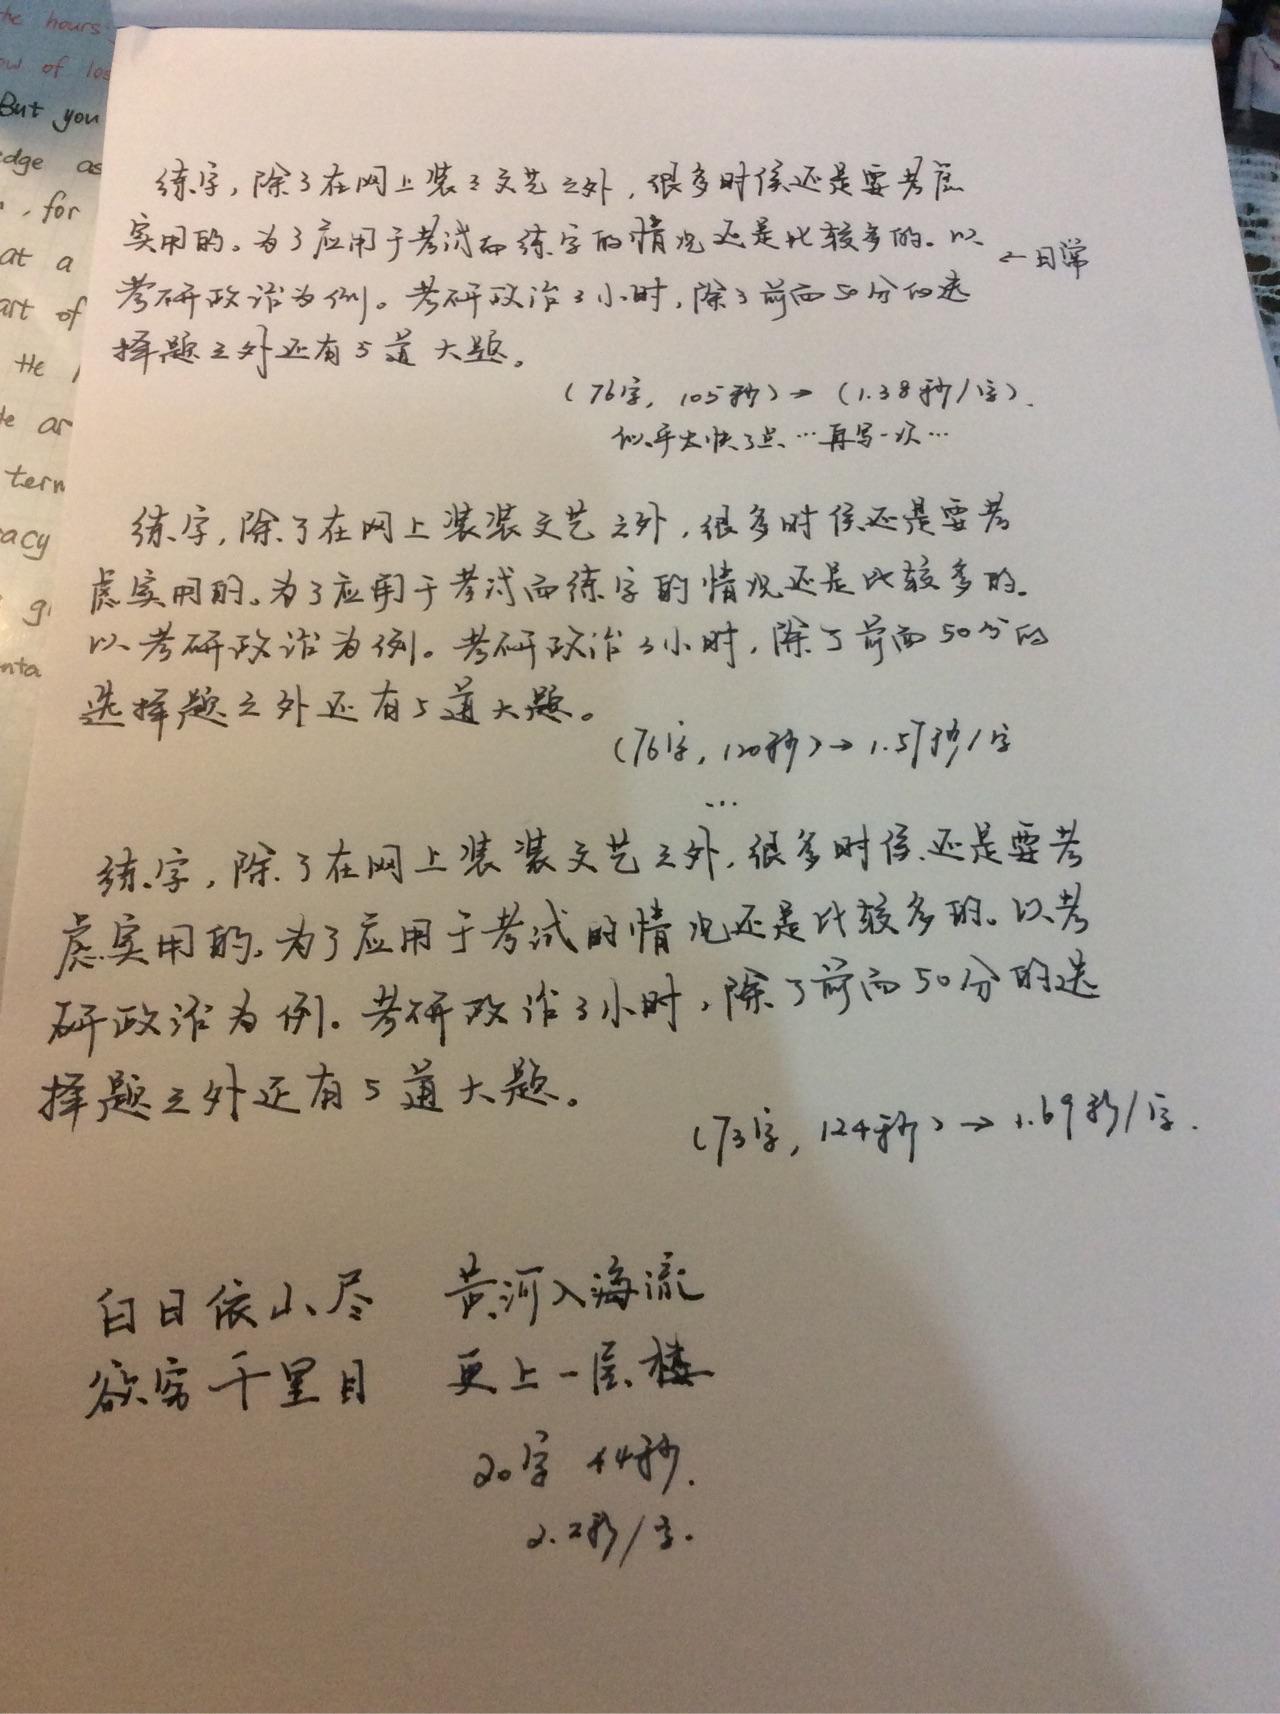 the hours
ow of los
But you
edge as
, for
at a
art of
He
e ar
term
acy
g
nta
练字，除了在网上装々文艺之外，很多时候还是要考虑
实用的。为了应用于考试而练字的情况还是比较多的。以
←日常
考研政治为例。考研政治3小时，除了前面50分的选
择题之外还有5道大题。
(76字，105秒)→(1.38秒/字).
似乎太快了点…再写一次…
练字，除了在网上装装文艺之外，很多时候还是要考
虑实用的。为了应用于考试而练字的情况还是比较多的。
以考研政治为例。考研政治3小时，除了前面50分的
选择题之外还有5道大题。
(76字，120秒)→1.57秒/字
…
练字，除了在网上装装文艺之外，很多时候还是要考
虑实用的。为了应用于考试的情况还是比较多的。以考
研政治为例。考研政治3小时，除了前面50分的选
择题之外还有5道大题。
(73字，124秒)→1.69秒/字.
白日依山尽 黄河入海流
欲穷千里目 更上一层楼
20字 44秒.
2.2秒/字.